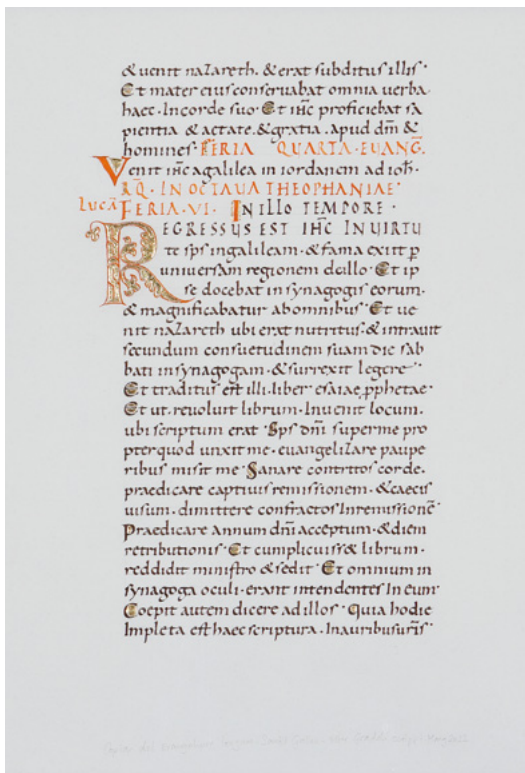 & uenit naZareth. & erat subditus illis·
Et mater eius conseruabat omnia uerba
haec. Incorde suo· Et ihc proficiebat sa
pientia & aetate. & gratia. apud dm &
homines· FERIA QUARTA·EUANG.
Venit ihc agalilea in iordanem ad ioh·
RQ· IN OCTAUA THEOPHANIAE·
LUCA FERIA·VI· IN ILLO TEMPORE·
REGRESSUS EST IHC IN UIRTU
te sps ingalileam·& fama exiit p
uniuersam regionem deillo· Et ip
se docebat in synagogis eorum·
& magnificabatur abomnibus· Et ue
nit naZareth ubi erat nutritus·& intrauit
secundum consuetudinem suam die sab
bati insynagogam·& surrexit legere·
Et traditus est illi·liber esaiae pphetae·
Et ut·reuoluit librum·Inuenit locum.
ubi scriptum erat· Sps dni superme pro
pterquod unxit me·euangeliZare paupe
ribus misit me· Sanare contritos corde.
praedicare captiuis remissionem·& caecis
uisum·dimittere confractos Inremissione
Praedicare annum dni acceptum·& diem
retributionis· Et cumplicuiss& librum·
reddidit ministro & sedit· Et omnium in
synagoga oculi·erant intendentes In eum·
Coepit autem dicere ad illos· Quia hodie
Impleta est haec scriptura·Inauribus uris·